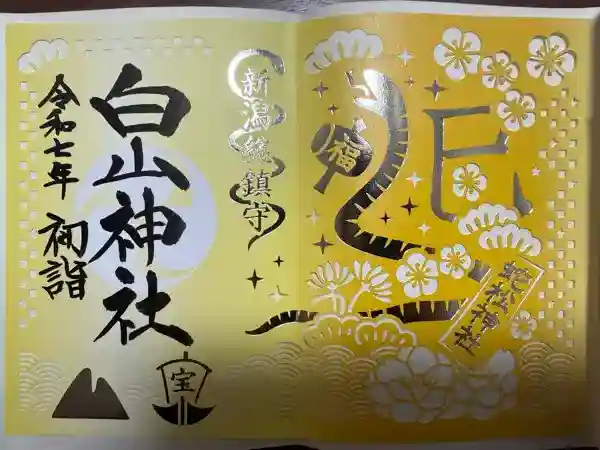 巳
福
蛇松神社
新潟総鎮守
白山神社
令和七年 初詣
宝